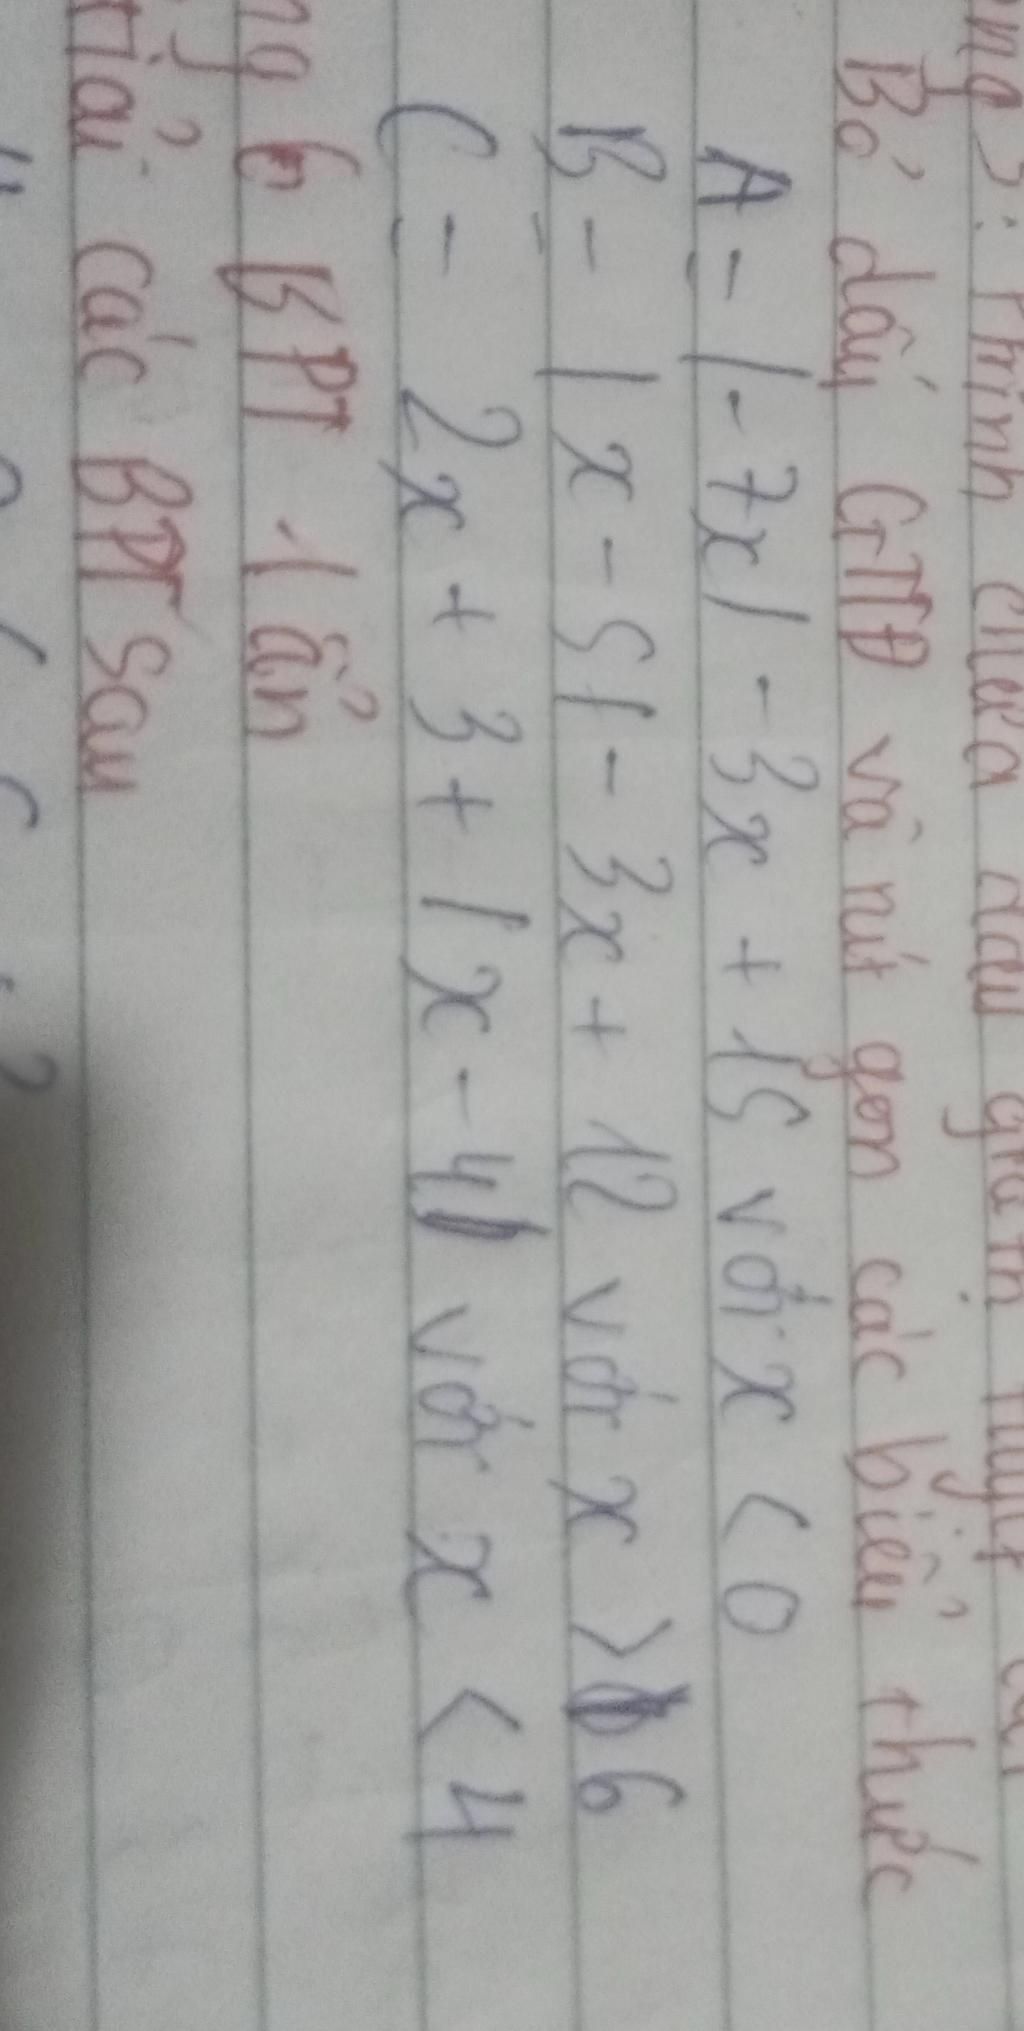 3: Trình chứa dấu
Bỏ dấu GTTĐ và rút gọn các biểu thức
A = |-7x| - 3x + 15 với x < 0
B = |x - 5| - 3x + 12 với x > 6
C = 2x + 3 + |x - 4| với x < 4
6 BPT 1 ẩn
Giải các BPT sau